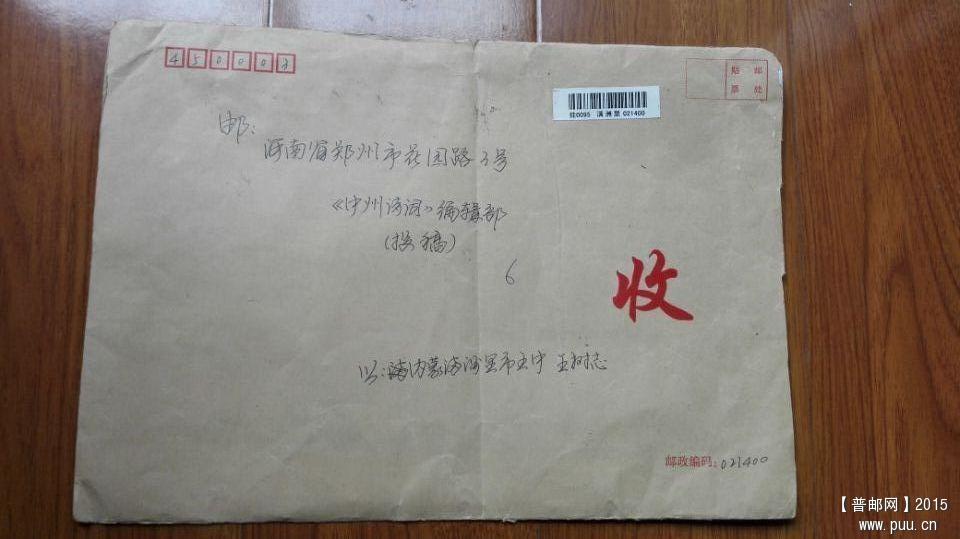 450003
贴 邮
票 处
挂0095 满洲里 021400
邮:
河南省郑州市花园路3号
《中州诗词》编辑部
(投稿)
6
收
内蒙满洲里市五中 王树志
邮政编码:021400
【普邮网】2015
www.puu.cn